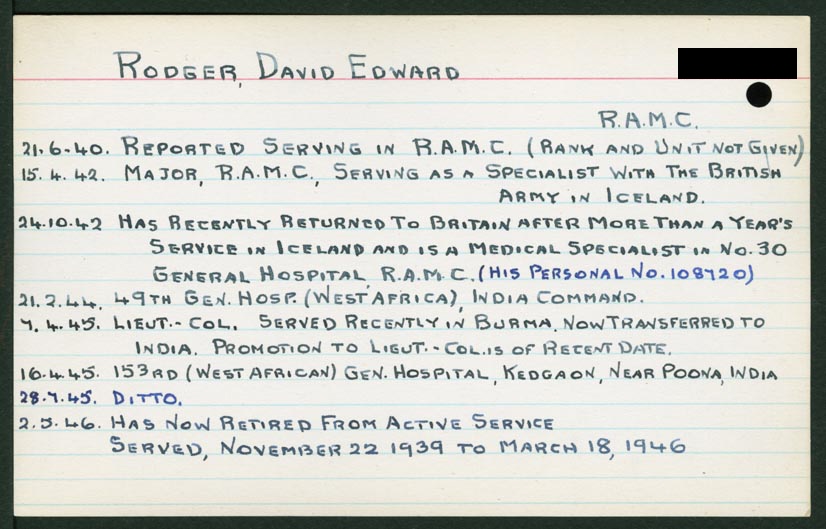 RODGER, DAVID EDWARD
R.A.M.C.
21.6.40. REPORTED SERVING IN R.A.M.C. (RANK AND UNIT NOT GIVEN)
15.4.42. MAJOR, R.A.M.C., SERVING AS A SPECIALIST WITH THE BRITISH
ARMY IN ICELAND.
24.10.42 HAS RECENTLY RETURNED TO BRITAIN AFTER MORE THAN A YEAR'S
SERVICE IN ICELAND AND IS A MEDICAL SPECIALIST IN NO. 30
GENERAL HOSPITAL, R.A.M.C. (HIS PERSONAL NO. 108720)
21.2.44. 49TH GEN. HOSP. (WEST AFRICA), INDIA COMMAND.
7.4.45. LIEUT.-COL. SERVED RECENTLY IN BURMA, NOW TRANSFERRED TO
INDIA. PROMOTION TO LIEUT.-COL. IS OF RECENT DATE.
16.4.45. 153RD (WEST AFRICAN) GEN. HOSPITAL, KEDGAON, NEAR POONA, INDIA
28.7.45. DITTO.
2.5.46. HAS NOW RETIRED FROM ACTIVE SERVICE
SERVED, NOVEMBER 22 1939 TO MARCH 18, 1946